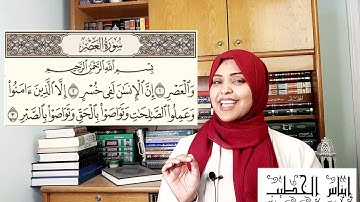 سُورَةُ العَصْرِ
بِسْمِ اللَّهِ الرَّحْمَٰنِ الرَّحِيمِ
وَالْعَصْرِ ۝١ إِنَّ الْإِنسَانَ لَفِي خُسْرٍ ۝٢ إِلَّا الَّذِينَ ءَامَنُوا
وَعَمِلُوا الصَّالِحَاتِ وَتَوَاصَوْا بِالْحَقِّ وَتَوَاصَوْا بِالصَّبْرِ ۝٣
إيناس الخطيب